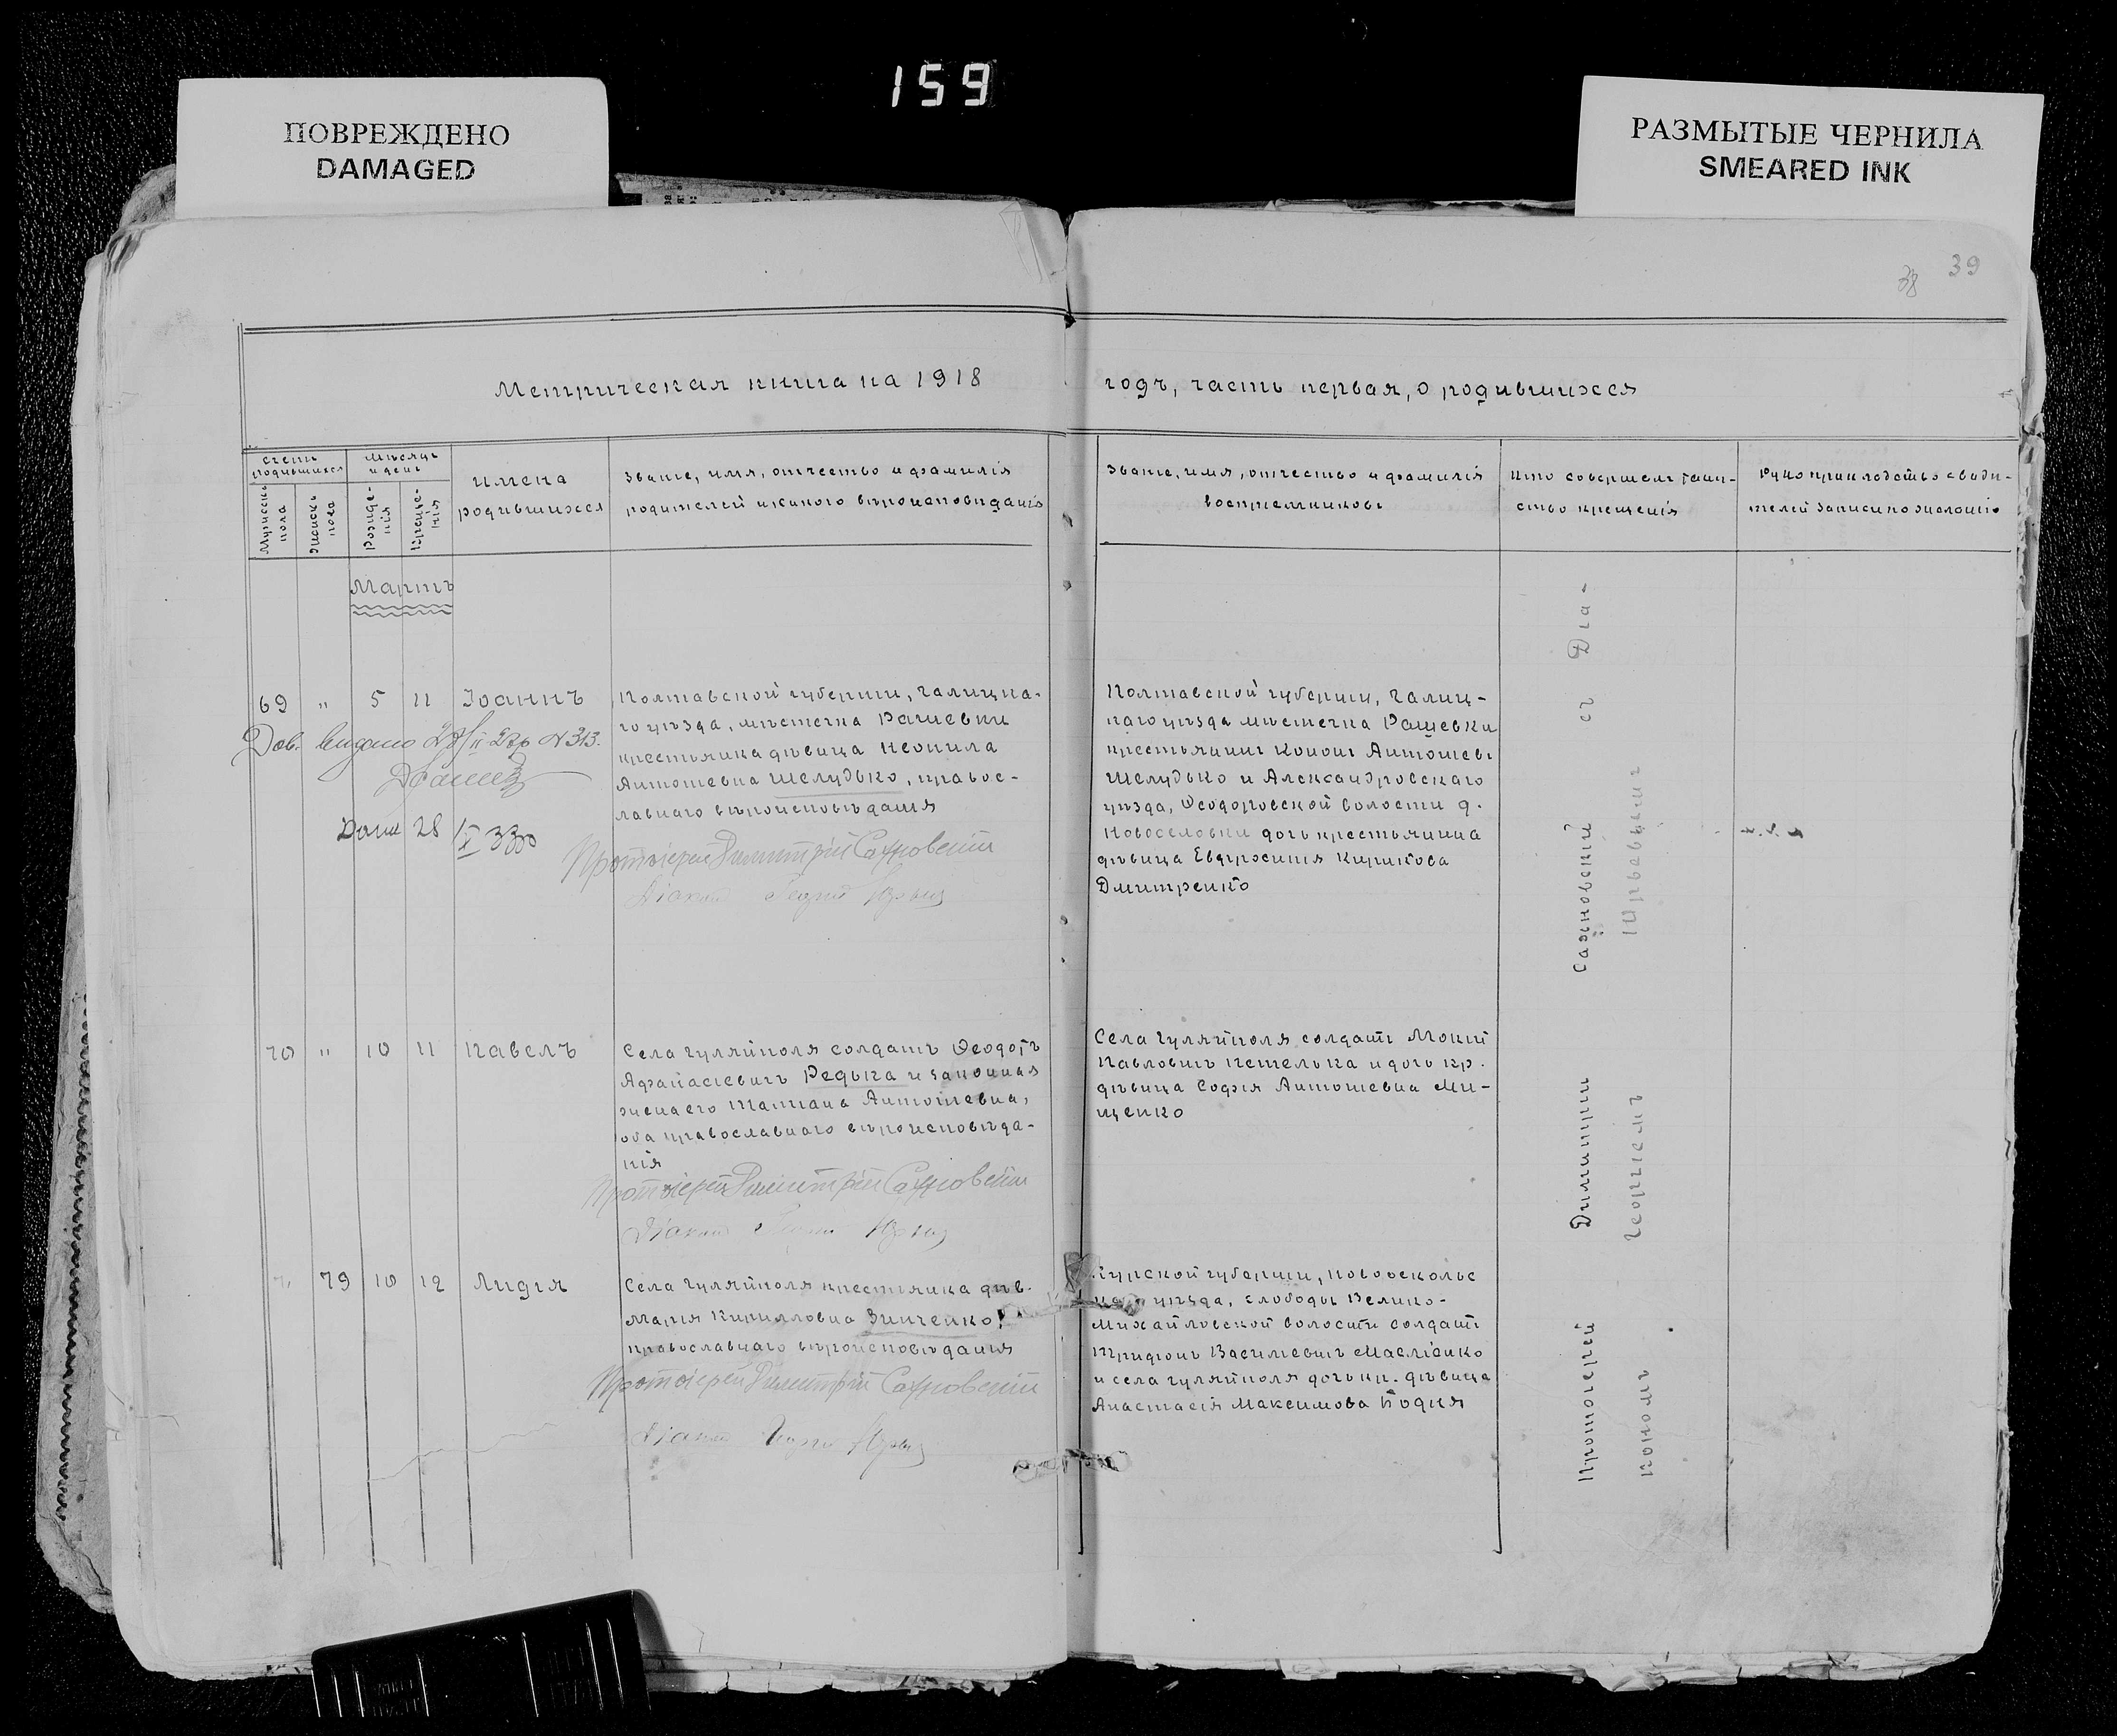 159
ПОВРЕЖДЕНО
DAMAGED
РАЗМЫТЫЕ ЧЕРНИЛА
SMEARED INK
38 39
Метрическая книга на 1918
годъ, часть первая, о родившихся
Счетъ родившихся
Мѣсяцъ и день
Мужеска пола
Женска пола
Рожде-
нія
Креще-
нія
имена
родившихся
Званіе, имя, отчество и фамилія
родителей и какого вѣроисповѣданія
Званіе, имя, отчество и фамилія
воспріемниковъ
Кто совершалъ таин-
ство крещенія
Рукоприкладство свидѣ-
телей записи по желанію
Мартъ
69 " 5 11 Іоаннъ
Полтавской губерніи, Гадяцка-
го уѣзда, мѣстечка Рашевки
крестьянка дѣвица Неонила
Антоніевна Шелудько, правос-
лавнаго вѣроисповѣданія
Протоіерей Димитрій Сахновскій
Діаконъ Георгій
Дов. видано №313.
28
Полтавской губерніи, Гадяц-
каго уѣзда мѣстечка Рашевки
крестьянинъ Кононъ Антоніевъ
Шелудько и Александровскаго
уѣзда, Ѳеодоровской волости д.
Новоселовки дочь крестьянина
дѣвица Евфросинія Кирикова
Дмитренко
70 " 10 11 Павелъ
Села Гуляйполя солдатъ Ѳеодотъ
Афанасіевичъ Редька и законная
жена его Татіана Антоніевна,
оба православнаго вѣроисповѣда-
нія
Протоіерей Димитрій Сахновскій
Діаконъ Георгій
Села Гуляйполя солдатъ Мокій
Павловичъ Петелька и дочь кр.
дѣвица Софія Антоніевна Ми-
щенко
" 79 10 12 Лидія
Села Гуляйполя крестьянка дѣв.
Марія Кирилловна Зинченко,
православнаго вѣроисповѣданія
Протоіерей Димитрій Сахновскій
Діаконъ Георгій
Курской губерніи, Новооскольс
каго уѣзда, слободы Велико-
Михайловской волости солдатъ
Трифонъ Василіевичъ
и села Гуляйполя дочь кр. дѣвица
Анастасія Максимова Бодня
Протоіерей Димитрій Сахновскій съ Діа-
кономъ Георгіемъ